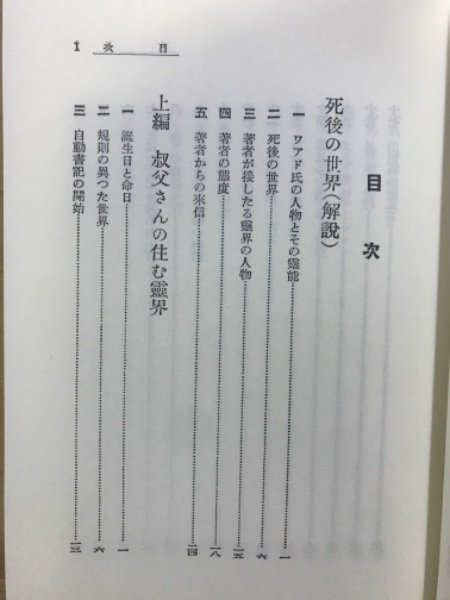 目次 1
目次
死後の世界（解説）
一 ワアド氏の人物とその靈能……一
二 死後の世界……六
三 著者が接したる靈界の人物……一五
四 著者の態度……一八
五 著者からの來信……二四
上編 叔父さんの住む靈界
一 誕生日と命日……一
二 規則の異つた世界……六
三 自動書記の開始……一三